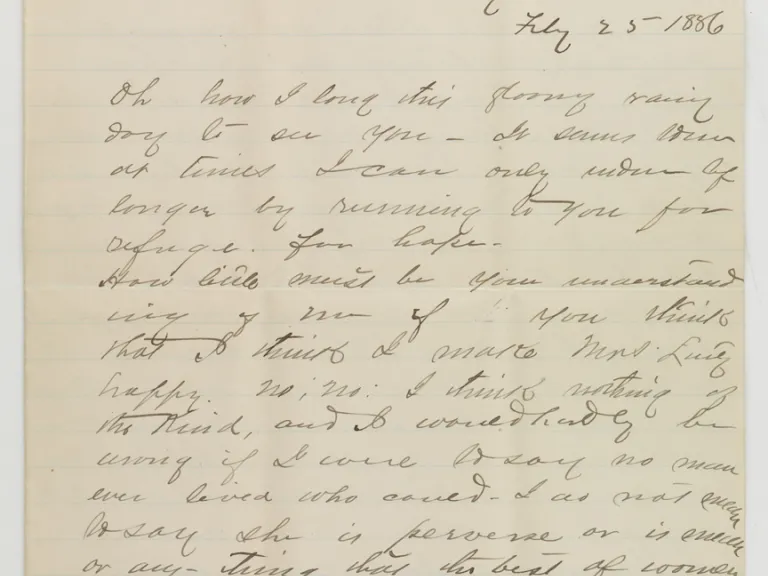 Feby 25 1886
Oh how I long this gloomy rainy
day to see you - It seems to me
at times I can only endure life
longer by running to you for
refuge. for hope.
How little must be your understand
ing of me if you think
that I think I make Mrs.
happy. no, no: I think nothing of
the kind, and I would hardly be
wrong if I were to say no man
ever lived who could - I do not mean
to say she is perverse or is mean
or any-thing that the best of women